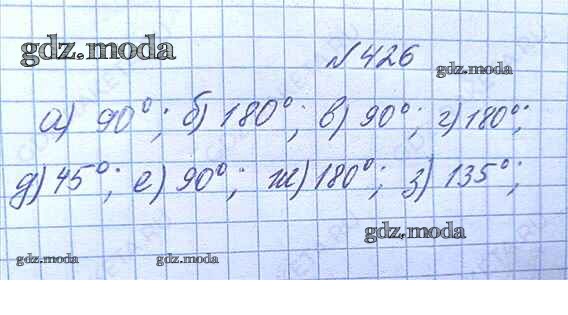 gdz.moda
№ 426
gdz.moda
а) 90°; б) 180°; в) 90°; г) 180°;
д) 45°; е) 90°; ж) 180°; з) 135°;
gdz.moda
gdz.moda gdz.moda